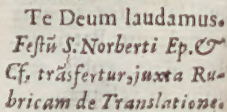 Te Deum laudamus.
Festũ S. Norberti Ep. &
Cf, trãsfertur, juxta Ru-
bricam de Translatione.